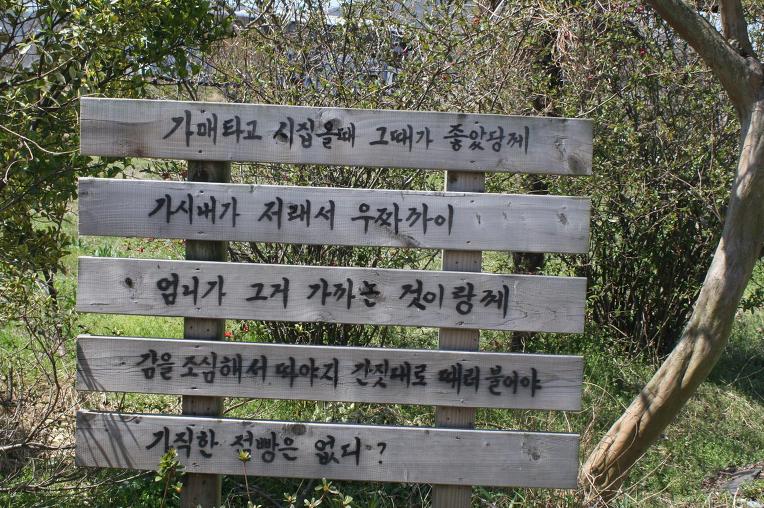 가매타고 시집올때 그때가 좋았당께
가시내가 저래서 우짜까이
엄니가 그거 가꼬는 것이랑께
감을 조심해서 따야지 간짓대로 때려불어야
기직한 전빵은 없다?